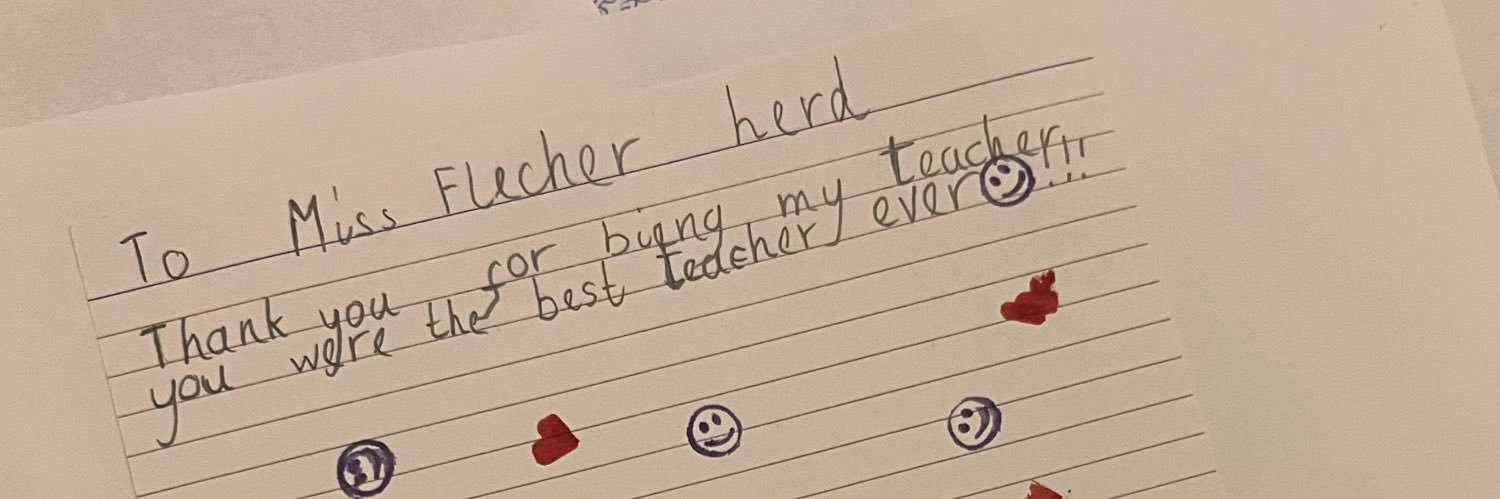 To Miss Flecher herd
Thank you for biqng my teacher!!
you were the best teacher ever!!!